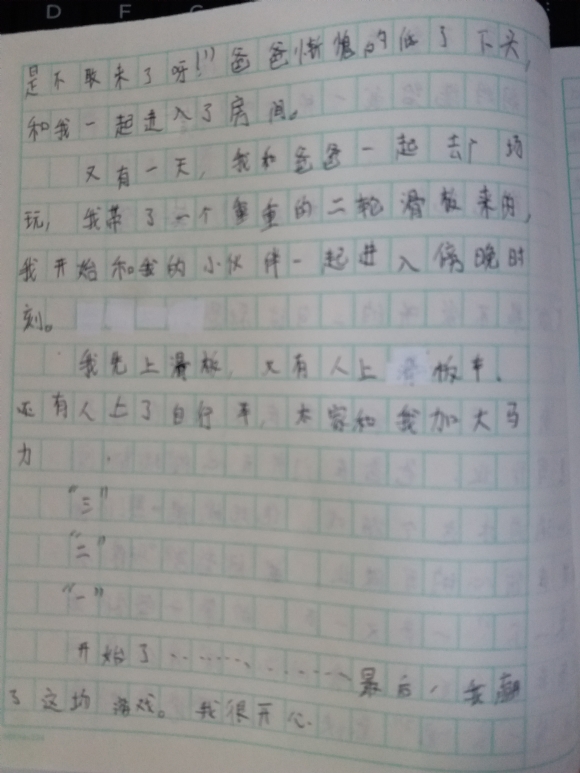 D F
是不敢来了呀!”爸爸惭愧的低了下头,
和我一起进入了房间。
又有一天,我和爸爸一起去广场
玩,我带了一个重重的二轮滑板来的,
我开始和我的小伙伴一起进入傍晚时
刻。
我先上滑板,又有人上滑板车.
还有人上了自行车,大家和我加大马
力
“三”
“二”
“一”
开始了……………最后,我
了这场游戏。我很开心.